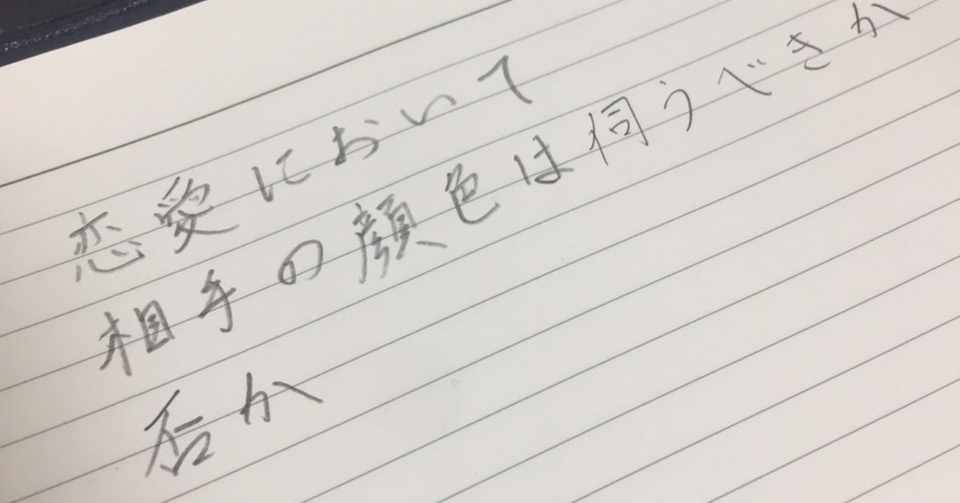 恋愛において
相手の顔色は伺うべきか
否か